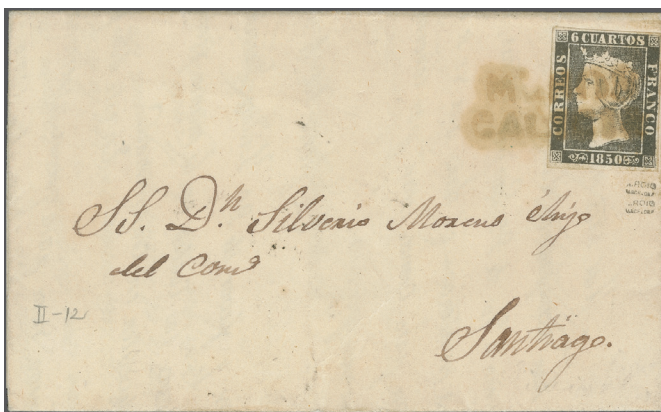 6 CUARTOS
CORREOS
FRANCO
1850
SS. Dn. Silverio Moreno é Hijo
del Como
Santiago.
II-12